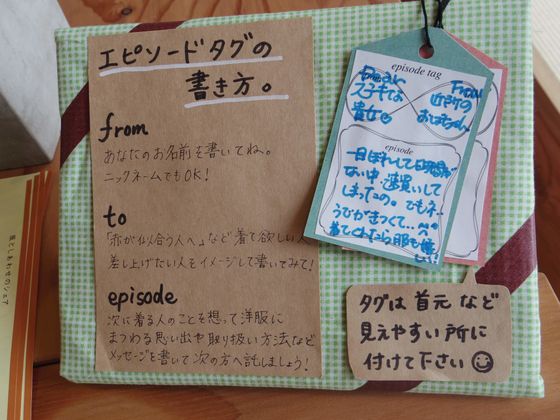 エピソードタグの
書き方。
from
あなたのお名前を書いてね。
ニックネームでもOK!
to
「赤が似合う人へ」など着て欲しい人
差し上げたい人をイメージして書いてみて!
episode
次に着る人のことを想って洋服に
まつわる思い出や取り扱い方法など
メッセージを書いて次の方へ託しましょう!
episode tag
ステキな
貴女へ
From
近所の
おばちゃん
episode
一目ぼれして時間が
ない中・速買いして
しまったの。でもネ、
うでがきつくて…
着てくれたら服も嬉しい
タグは首元など
見えやすい所に
付けて下さい
風としあわせのシェア